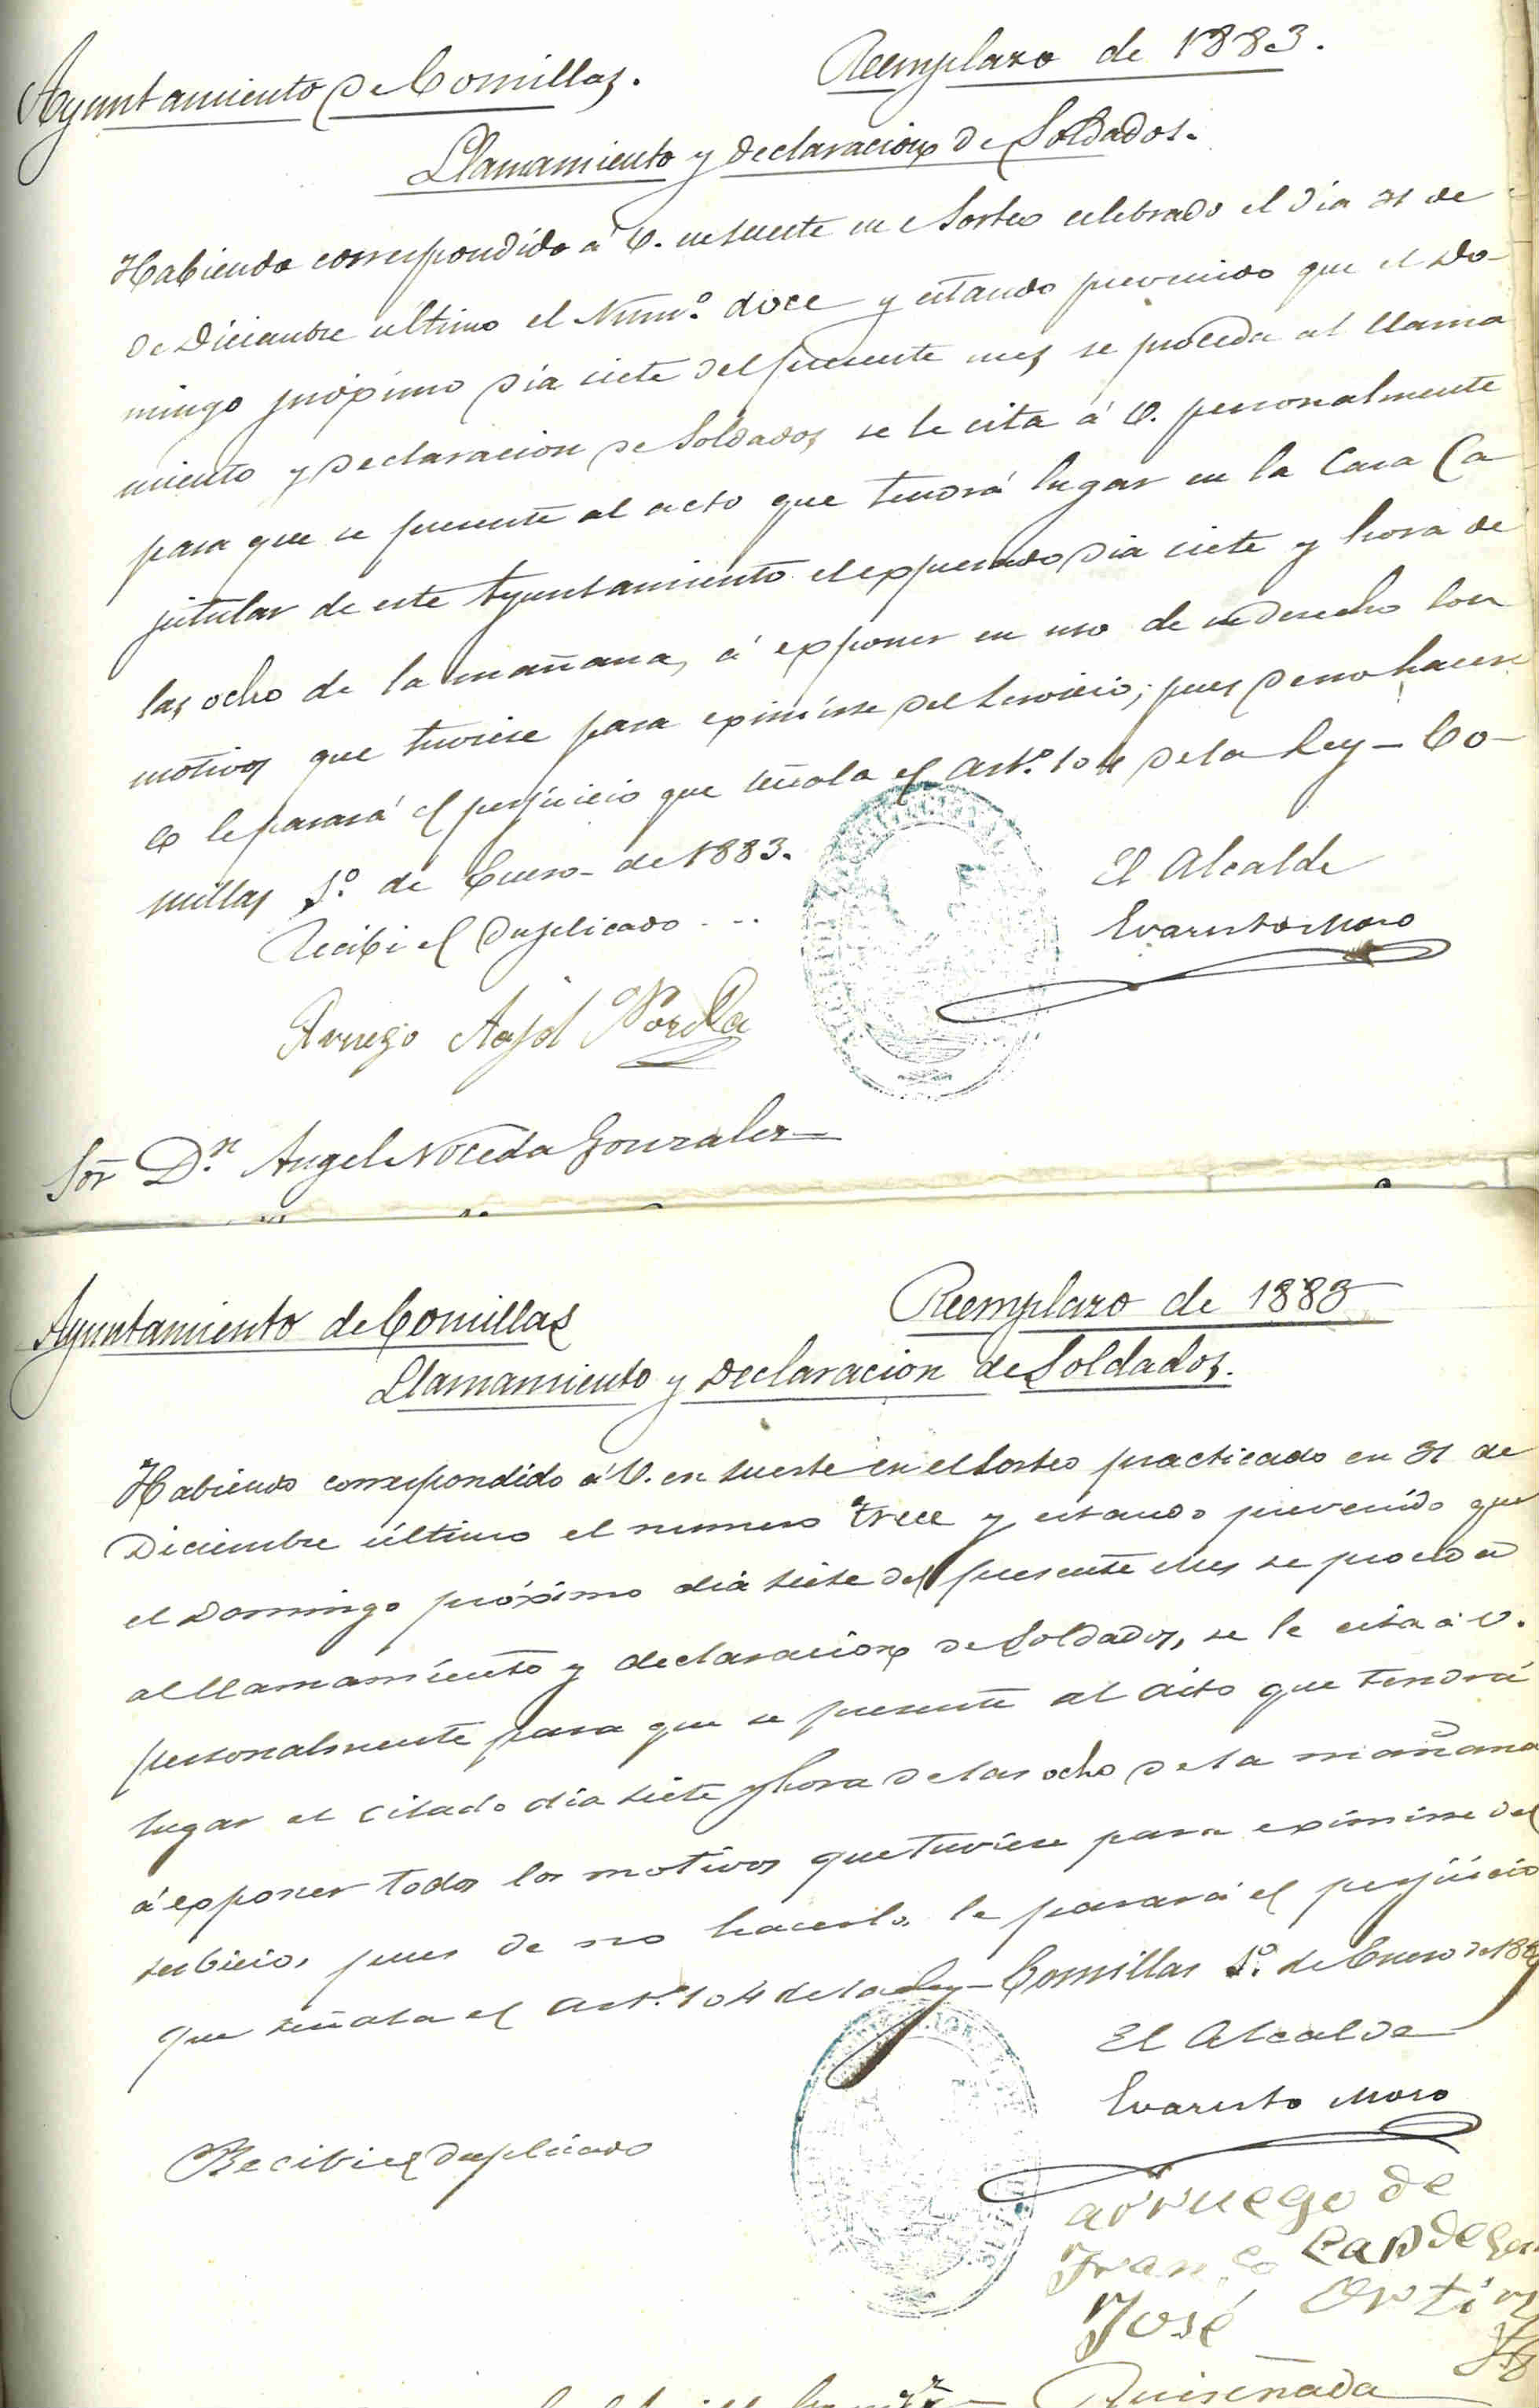 Ayuntamiento de Comillas.
Reemplazo de 1883.
Llamamiento y declaracion de Soldados.
Habiendo correspondido á V. en suerte en el Sorteo celebrado el dia 31 de
de Diciembre último el Num.º doce y estando prevenido que el Do-
mingo próximo dia siete del presente mes, se proceda al llama
miento y declaracion de Soldados, se le cita á V. personalmente
para que se presente al acto que tendrá lugar en la Casa Ca-
pitular de este Ayuntamiento el expresado dia siete y hora de
las ocho de la mañana, á exponer en uso de su derecho los
motivos que tuviese para eximirse del servicio; pues de no hacer
lo le parará el perjuicio que señala el Artº. 104 de la Ley - Co-
millas 1º. de Enero de 1883.
El Alcalde
Recibi el Duplicado
Evaristo Moro
Sor. D.n Angel Noceda Gonzalez
Ayuntamiento de Comillas
Reemplazo de 1883
Llamamiento y declaracion de Soldados.
Habiendo correspondido á V. en suerte en el sorteo practicado en 31 de
Diciembre último el numero trece y estando prevenido que
el Domingo próximo dia siete del presente mes se proceda
al llamamiento y declaracion de Soldados, se le cita á V.
personalmente para que se presente al acto que tendrá
lugar el citado dia siete y hora de las ocho de la mañana
á exponer todos los motivos que tuviese para eximirse del
serbicio, pues de no hacerlo le parará el perjuicio
que señala el Art.º 104 de la Ley - Comillas 1º. de Enero de 188
El Alcalde
Evaristo Moro
Recibi el duplicado
arruego de
Fran.co
José Ortiz